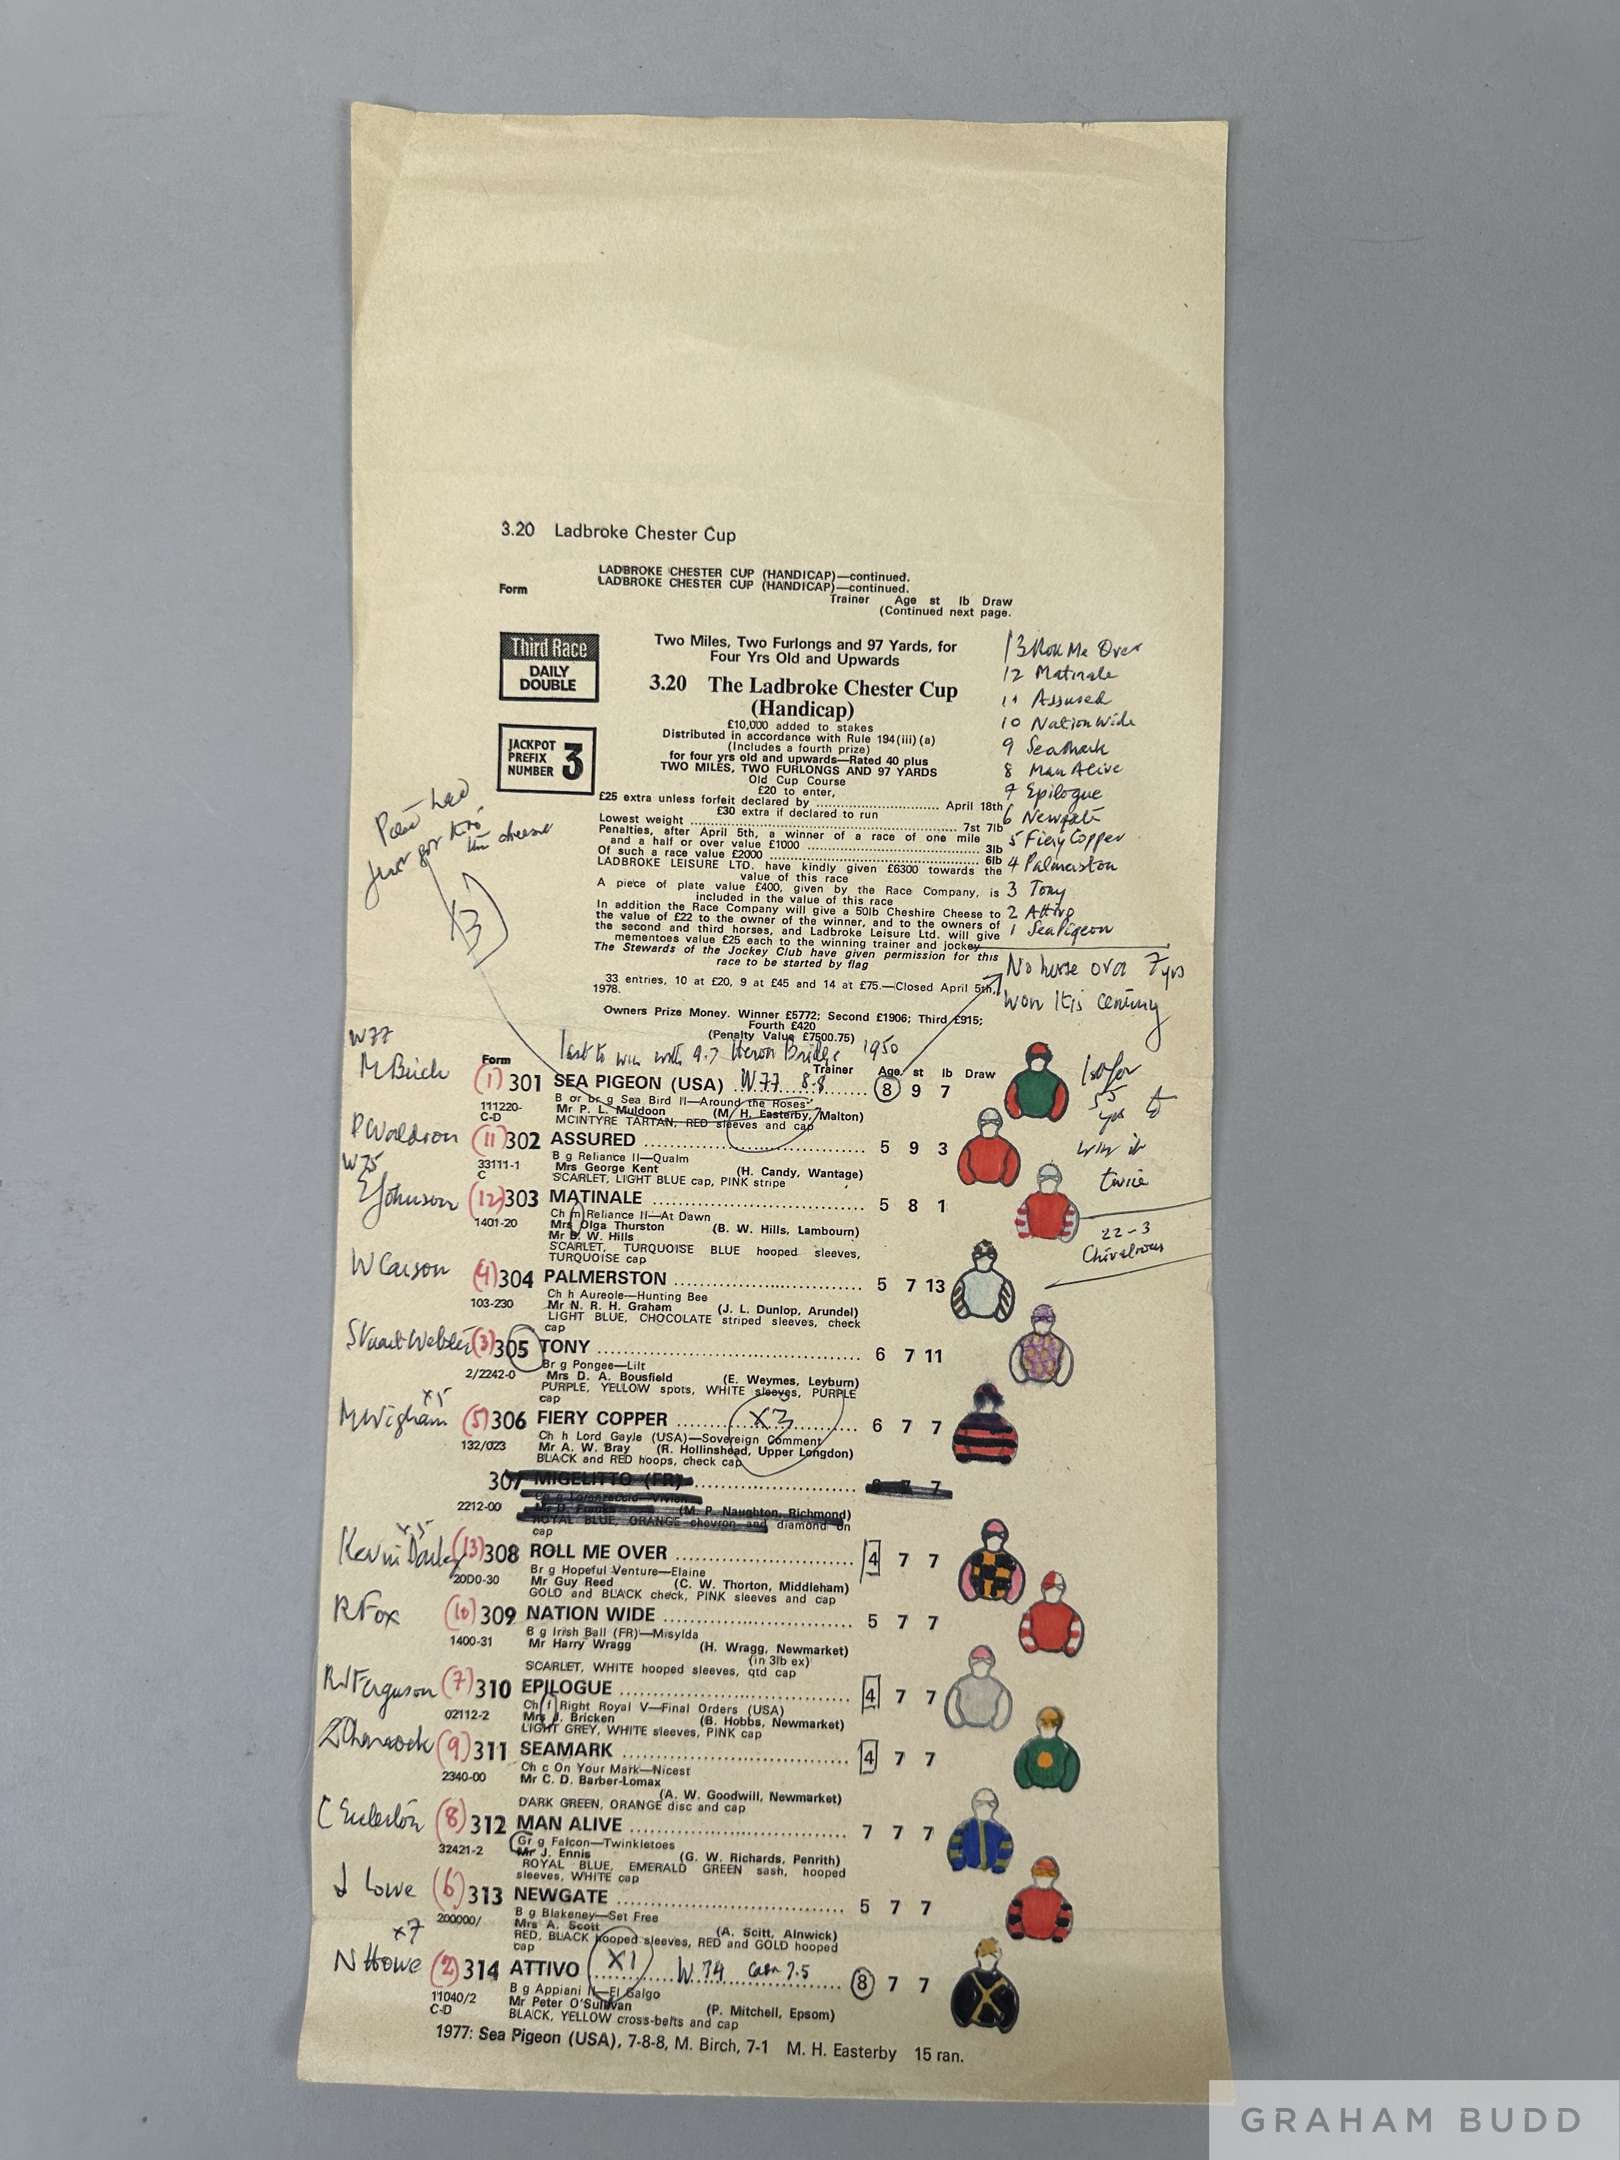 3.20 Ladbroke Chester Cup
LADBROKE CHESTER CUP (HANDICAP)—continued.
LADBROKE CHESTER CUP (HANDICAP)—continued.
Form
Trainer Age st lb Draw
(Continued next page.
Third Race
DAILY
DOUBLE
Two Miles, Two Furlongs and 97 Yards, for
Four Yrs Old and Upwards
3.20 The Ladbroke Chester Cup
(Handicap)
JACKPOT
PREFIX
NUMBER 3
£10,000 added to stakes
Distributed in accordance with Rule 194(iii)(a)
(Includes a fourth prize)
for four yrs old and upwards—Rated 40 plus
TWO MILES, TWO FURLONGS AND 97 YARDS
Old Cup Course
£20 to enter,
£25 extra unless forfeit declared by April 18th
£30 extra if declared to run
Lowest weight 7st 7lb
Penalties, after April 5th, a winner of a race of one mile
and a half or over value £1000 3lb
Of such a race value £2000 6lb
LADBROKE LEISURE LTD. have kindly given £6300 towards the
value of this race
A piece of plate value £400, given by the Race Company, is
included in the value of this race
In addition the Race Company will give a 50lb Cheshire Cheese to
the value of £22 to the owner of the winner, and to the owners of
the second and third horses, and Ladbroke Leisure Ltd. will give
mementoes value £25 each to the winning trainer and jockey
The Stewards of the Jockey Club have given permission for this
race to be started by flag
33 entries, 10 at £20, 9 at £45 and 14 at £75.—Closed April 5th,
1978.
Owners Prize Money. Winner £5772; Second £1906; Third £915;
Fourth £420
(Penalty Value £7500.75)
13 Roll Me Over
12 Matinale
11 Assured
10 Nation Wide
9 Seamark
8 Man Alive
7 Epilogue
6 Newgate
5 Fiery Copper
4 Palmerston
3 Tony
2 Attivo
1 Sea Pigeon
No horse over 7 yrs
won this century
just got
cheese
x3
last to win with 9.7 Heron Bridge 1950
Form Trainer Age st lb Draw
W77
M Birch (1) 301 SEA PIGEON (USA) W77 8-8 8 9 7
111220-
C-D
B or br g Sea Bird II—Around the Roses
Mr P. L. Muldoon (M. H. Easterby, Malton)
MCINTYRE TARTAN, RED sleeves and cap
1st for
55
yrs to
win it
twice
P Waldron (11) 302 ASSURED 5 9 3
33111-1
C
B g Reliance II—Qualm
Mrs George Kent (H. Candy, Wantage)
SCARLET, LIGHT BLUE cap, PINK stripe
W75
E Johnson (12) 303 MATINALE 5 8 1
1401-20
Ch m Reliance II—At Dawn
Mrs Olga Thurston (B. W. Hills, Lambourn)
Mr B. W. Hills
SCARLET, TURQUOISE BLUE hooped sleeves,
TURQUOISE cap
22-3
Chivalrous
W Carson (4) 304 PALMERSTON 5 7 13
103-230
Ch h Aureole—Hunting Bee
Mr N. R. H. Graham (J. L. Dunlop, Arundel)
LIGHT BLUE, CHOCOLATE striped sleeves, check
cap
Stuart Webster (3) 305 TONY 6 7 11
2/2242-0
Br g Pongee—Lilt
Mrs D. A. Bousfield (E. Weymes, Leyburn)
PURPLE, YELLOW spots, WHITE sleeves, PURPLE
cap
x5
M Wigham (5) 306 FIERY COPPER x3 6 7 7
132/023
Ch h Lord Gayle (USA)—Sovereign Comment
Mr A. W. Bray (R. Hollinshead, Upper Longdon)
BLACK and RED hoops, check cap
307 MIGELITTO (FR) 7 7
2212-00
(M. P. Naughton, Richmond)
ROYAL BLUE, ORANGE chevron and diamond on
cap
x5
Kevin Darley (13) 308 ROLL ME OVER 4 7 7
2000-30
Br g Hopeful Venture—Elaine
Mr Guy Reed (C. W. Thorton, Middleham)
GOLD and BLACK check, PINK sleeves and cap
R Fox (10) 309 NATION WIDE 5 7 7
1400-31
B g Irish Ball (FR)—Misylda
Mr Harry Wragg (H. Wragg, Newmarket)
(in 3lb ex)
SCARLET, WHITE hooped sleeves, qtd cap
R J Ferguson (7) 310 EPILOGUE 4 7 7
02112-2
Ch f Right Royal V—Final Orders (USA)
Mrs J. Bricken (B. Hobbs, Newmarket)
LIGHT GREY, WHITE sleeves, PINK cap
Charnock (9) 311 SEAMARK 4 7 7
2340-00
Ch c On Your Mark—Nicest
Mr C. D. Barber-Lomax
(A. W. Goodwill, Newmarket)
DARK GREEN, ORANGE disc and cap
C Eccleston (8) 312 MAN ALIVE 7 7 7
32421-2
Gr g Falcon—Twinkletoes
Mr J. Ennis (G. W. Richards, Penrith)
ROYAL BLUE, EMERALD GREEN sash, hooped
sleeves, WHITE cap
J Lowe (6) 313 NEWGATE 5 7 7
200000/
B g Blakeney—Set Free
Mrs A. Scott (A. Scitt, Alnwick)
RED, BLACK hooped sleeves, RED and GOLD hooped
cap
x7
N Howe (2) 314 ATTIVO x1 W74 7.5 8 7 7
11040/2
C-D
B g Appiani II—El Galgo
Mr Peter O'Sullvan (P. Mitchell, Epsom)
BLACK, YELLOW cross-belts and cap
1977: Sea Pigeon (USA), 7-8-8, M. Birch, 7-1 M. H. Easterby 15 ran.
GRAHAM BUDD